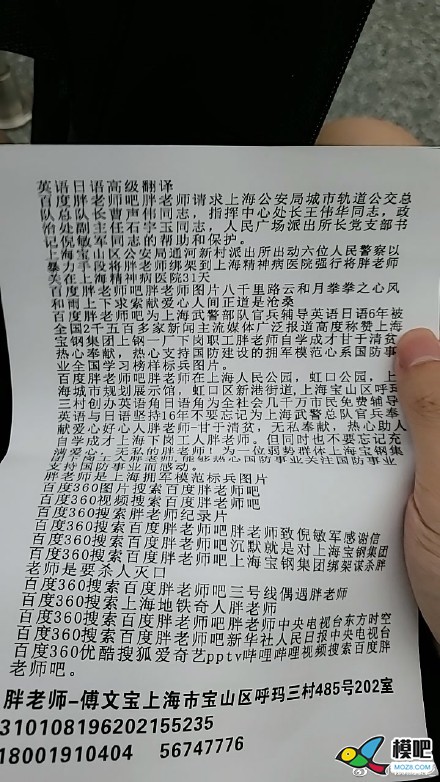 英语日语高级翻译
百度胖老师吧胖老师请求上海公安局城市轨道公交总
队总队长曹声伟同志，指挥中心处长王伟华同志，政
治处副主任石宇玉同志，人民广场派出所长党支部书
记倪敏军同志的帮助和保护。
上海宝山区公安局通河新村派出所出动六位人民警察以
暴力手段将胖老师绑架到上海精神病医院强行将胖老师
关在上海精神病医院31天
百度胖老师吧胖老师图片八千里路云和月拳拳之心风
和雨上下求索献爱心人间正道是沧桑
百度胖老师吧为上海武警部队官兵辅导英语日语6年被
全国2千五百多家新闻主流媒体广泛报道高度称赞上海
宝钢集团上钢一厂下岗职工胖老师自学成才甘于清贫
热心奉献，热心支持国防建设的拥军模范心系国防事
业全国学习榜样标兵图片。
百度胖老师吧胖老师在上海人民公园，虹口公园，上
海城市规划展示馆，虹口区新港街道，上海宝山区呼玛
三村创办英语角日语角为区社会几千万市民免费辅导
英语与日语坚持16年不要忘记为上海武警总队官兵奉
献爱心好心人胖老师-甘于清贫，无私奉献，热心助人
自学成才上海下岗工人胖老师。但同时也不要忘记充
满爱心，无私的胖老师！为一位弱势群体上海宝钢集
团下岗工人胖老师能够热心国防事业关注国防事业
支持国防事业而感动。
胖老师是上海拥军模范标兵图片
百度360图片搜索百度胖老师吧
百度360视频搜索百度胖老师吧
百度360搜索胖老师纪录片
百度360搜索百度胖老师吧胖老师致倪敏军感谢信
百度360搜索百度胖老师吧沉默就是对上海宝钢集团
百度360搜索百度胖老师吧上海宝钢集团绑架谋杀胖
老师是要杀人灭口
百度360搜索百度胖老师吧三号线偶遇胖老师
百度360搜索上海地铁奇人胖老师
百度360搜索百度胖老师吧胖老师中央电视台东方时空
百度360搜索百度胖老师吧新华社人民日报中央电视台
百度360优酷搜狐爱奇艺pptv哔哩哔哩视频搜索百度胖
老师吧。
胖老师-傅文宝上海市宝山区呼玛三村485号202室
310108196202155235
18001910404 56747776
模吧
MOZ8.COM